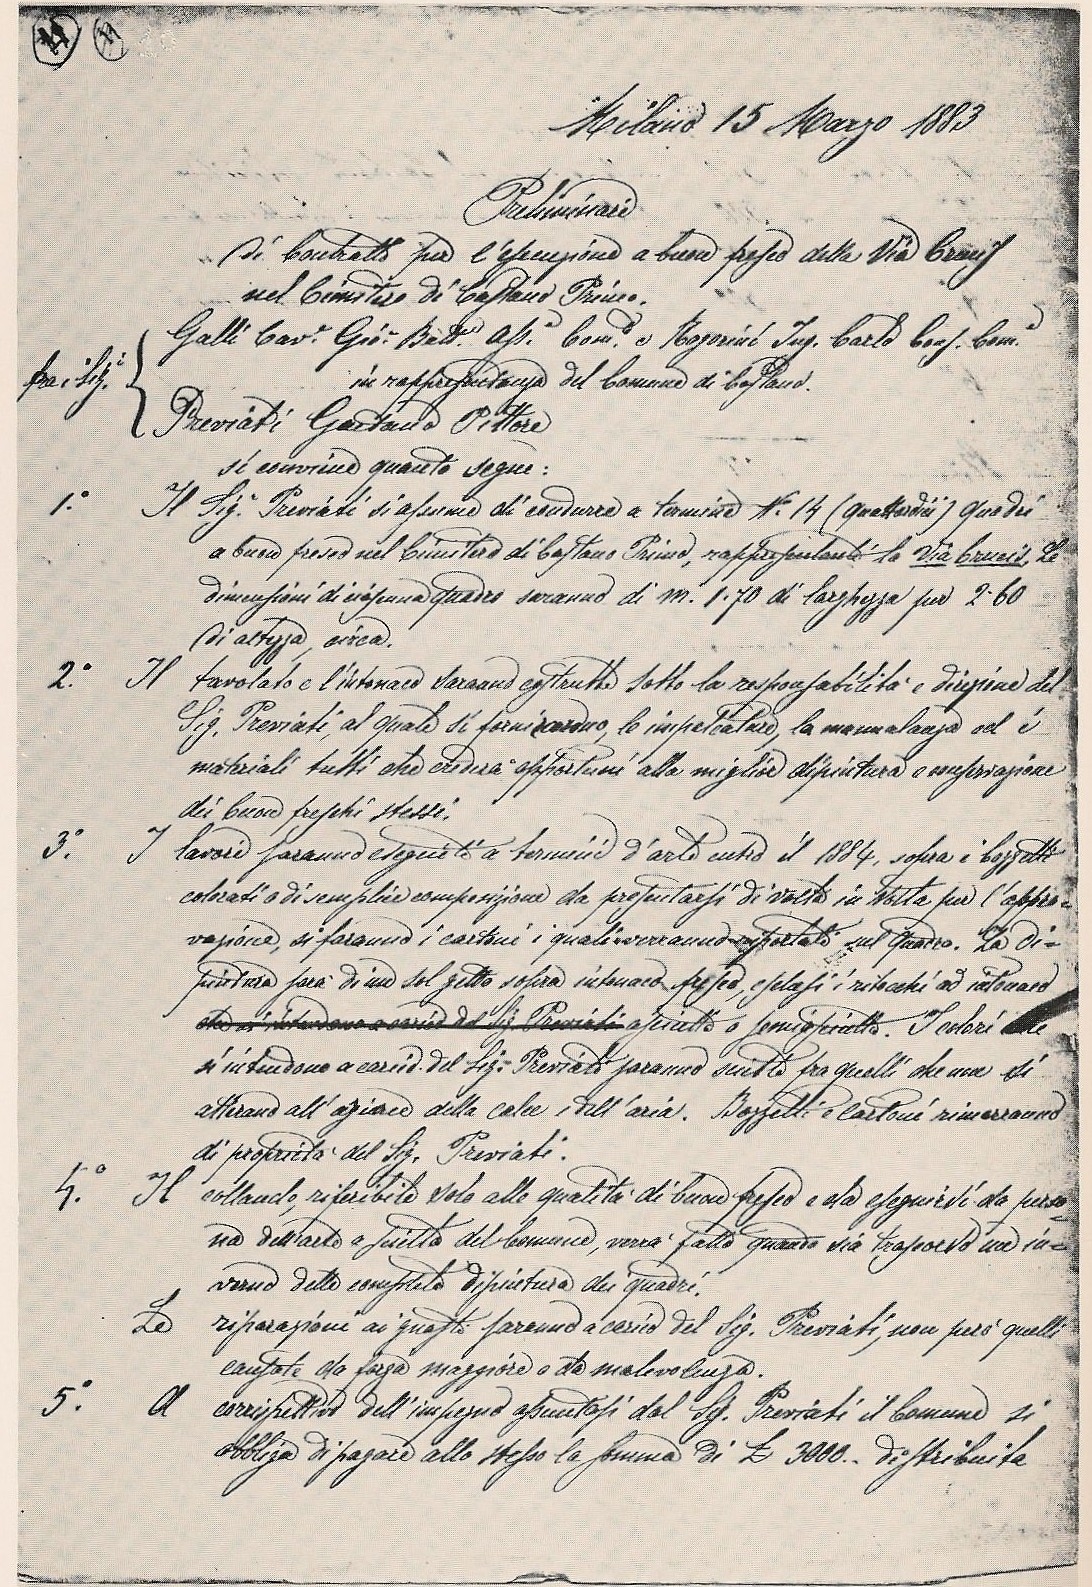 Milano 15 Marzo 1883
Preliminare
di Contratto per l'esecuzione a buon fresco della Via Crucis
nel Cimitero di Castano Primo.
Galli Cav.e Gio. Batt.a Ass.e Com.e e Rogorini Ing. Carlo Cons. Com.e
fra i Sig.i
in rappresentanza del Comune di Castano.
Previati Gaetano Pittore
si conviene quanto segue:
1.° Il Sig. Previati si assume di condurre a termine N.° 14 (quattordici) quadri
a buon fresco nel Cimitero di Castano Primo, rappresentanti la Via Crucis. Le
dimensioni di ciascun quadro saranno di m. 1.70 di larghezza per 2.60
di altezza, circa.
2.° Il tavolato e l'intonaco saranno costrutti sotto la responsabilità e direzione del
Sig. Previati, al quale si forniranno, le impalcature, la manualanza ed i
materiali tutti che crederà opportuni alla miglior dipintura e conservazione
dei buon freschi stessi.
3.° I lavori saranno eseguiti a termini d'arte entro il 1884, sopra i bozzetti
colorati o di semplice composizione da presentarsi di volta in volta per l'appro=
vazione, si faranno i cartoni i quali verranno riportati sul quadro. La di=
pintura sarà di un sol getto sopra intonaco fresco, esclusi i ritocchi ad intonaco
che si intendono a carico del Sig. Previati asciutto o semiasciutto. I colori che
si intendono a carico del Sig. Previati saranno scielti fra quelli che non si
alterano all'azione della calce e dell'aria. Bozzetti e Cartoni rimarranno
di proprietà del Sig. Previati.
4.° Il collaudo, riferibile solo alla qualità di buon fresco e da eseguirsi da perso=
na dell'arte a scielta del Comune, verrà fatto quando sia trascorso un in=
verno dalla completa dipintura dei quadri.
Le riparazioni ai guasti saranno a carico del Sig. Previati, non però quelli
causate da forza maggiore o da malevolenza.
5.° A corrispettivo dell'impegno assuntosi dal Sig. Previati il Comune si
obbliga di pagare allo stesso la somma di £ 3000.- distribuita